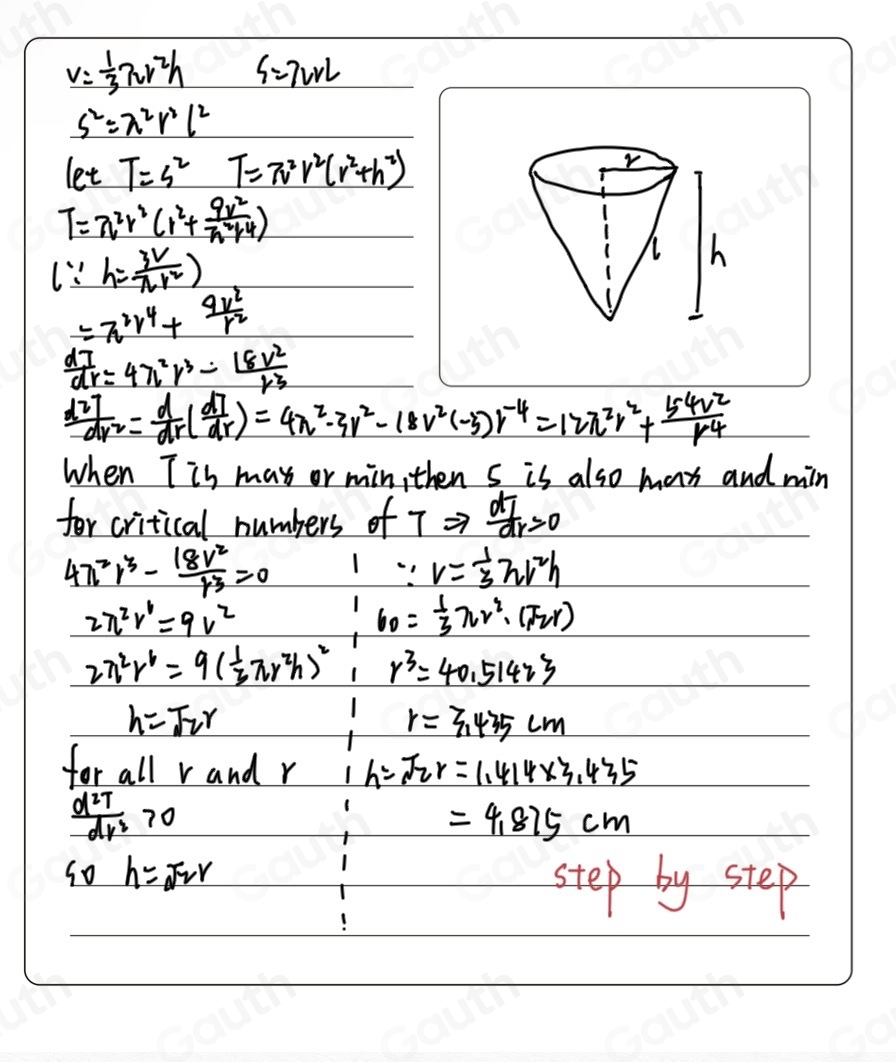 V = 1/3 πr²h S = πrL
S² = π²r²l²
let T = S² T = π²r²(r²+h²)
T = π²r²(r² + 9v²/π²r⁴)
(∵ h = 3V/πr²)
= π²r⁴ + 9v²/r²
dT/dr = 4π²r³ - 18v²/r³
d²T/dr² = d/dr(dT/dr) = 4π²·3r² - 18v²(-3)r⁻⁴ = 12π²r² + 54v²/r⁴
When T is max or min, then S is also max and min
for critical numbers of T ⇒ dT/dr = 0
4π²r³ - 18v²/r³ = 0
2π²r⁶ = 9v²
2π²r⁶ = 9(1/3 πr²h)²
h = √2r
for all v and r
d²T/dr² > 0
so h = √2r
∵ V = 1/3 πr²h
60 = 1/3 πr²·(√2r)
r³ = 40.51423
r = 3.435 cm
h = √2r = 1.414×3.435
= 4.875 cm
step by step
r
l
h
Gauth